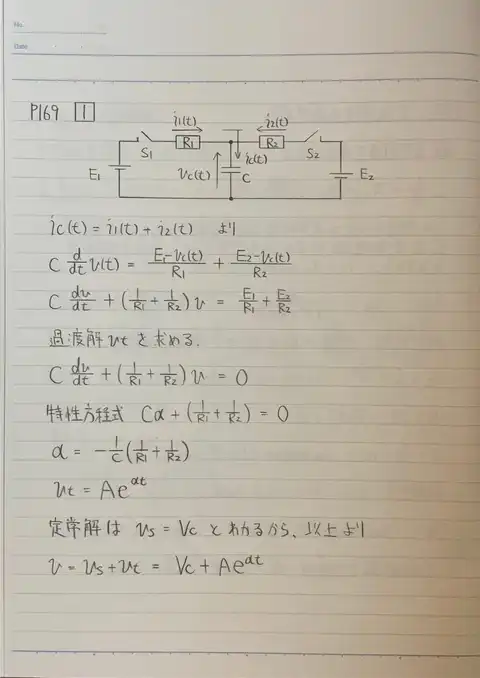 No.
Date
P169 1
i1(t) i2(t)
S1 R1 R2 S2
ic(t)
E1 vc(t) C E2
ic(t) = i1(t) + i2(t) より
C d/dt v(t) = (E1-vc(t))/R1 + (E2-vc(t))/R2
C dv/dt + (1/R1 + 1/R2)v = E1/R1 + E2/R2
過渡解 vtを求める.
C dv/dt + (1/R1 + 1/R2)v = 0
特性方程式 Cα + (1/R1 + 1/R2) = 0
α = -1/C(1/R1 + 1/R2)
vt = Ae^αt
定常解は vs = Vc とわかるから、以上より
v = vs + vt = Vc + Ae^αt